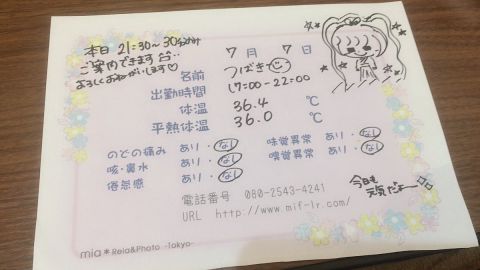 本日 21:30~30分のみ
ご案内できます
よろしくおねがいします♡
7月 7日
名前 つばき
出勤時間 17:00-22:00
体温 36.4 ℃
平熱体温 36.0 ℃
のどの痛み あり・なし 味覚異常 あり・なし
咳・鼻水 あり・なし 嗅覚異常 あり・なし
倦怠感 あり・なし
電話番号 080-2543-4241
URL http://www.mif-lr.com/
今日も
元気だよー
mia*Rela&Photo -tokyo-